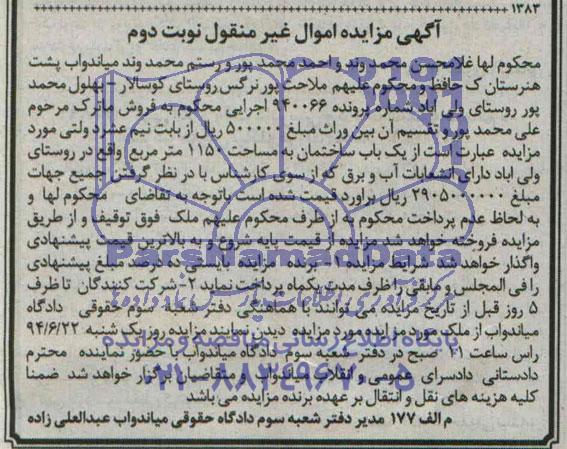 ۱۳۸۳
آگهی مزایده اموال غیر منقول نوبت دوم
محکوم لها غلامحسن محمد وند و احمد محمد پور و رستم محمد وند میاندواب پشت
هنرستان ک حافظ و محکوم علیهم ملاحت پور نرگس روستای گوسالار - بهلول محمد
پور روستای ولی اباد شماره پرونده ۹۴۰۰۶۶ اجرایی محکوم به فروش ماترک مرحوم
علی محمد پور و تقسیم آن بین وراث مبلغ ۵۰۰۰۰۰ ریال از بابت نیم عشر دولتی مورد
مزایده عبارت است از یک باب ساختمان به مساحت ۱۱۵ متر مربع واقع در روستای
ولی اباد دارای انشعابات آب و برق که از سوی کارشناس با در نظر گرفتن جمیع جهات
مبلغ ریال براورد قیمت شده است باتوجه به تقاضای محکوم لها و
به لحاظ عدم پرداخت محکوم به از طرف محکوم علیهم ملک فوق توقیف و از طریق
مزایده فروخته خواهد شد مزایده از قیمت پایه شروع و به بالاترین قیمت پیشنهادی
واگذار خواهد شد شرایط مزایده ۱- برنده مزایده بایستی ۱۰درصد مبلغ پیشنهادی
را فی المجلس و مابقی را ظرف مدت یکماه پرداخت نماید ۲- شرکت کنندگان تا ظرف
۵ روز قبل از تاریخ مزایده می توانند با هماهنگی دفتر شعبه سوم حقوقی دادگاه
میاندواب از ملک مورد مزایده مورد مزایده دیدن نمایند مزایده روز یک شنبه ۹۴/۶/۲۲
راس ساعت صبح در دفتر شعبه سوم دادگاه میاندواب با حضور نماینده محترم
دادستانی دادسرای عمومی و انقلاب میاندواب و متقاضیان برگزار خواهد شد ضمنا
کلیه هزینه های نقل و انتقال بر عهده برنده مزایده می باشد
م الف ۱۷۷ مدیر دفتر شعبه سوم دادگاه حقوقی میاندواب عبدالعلی زاده
ParsNamadData
پایگاه اطلاع رسانی مناقصه و مزایده
۰۲۱-۸۸۳۴۹۶۷۰-۵